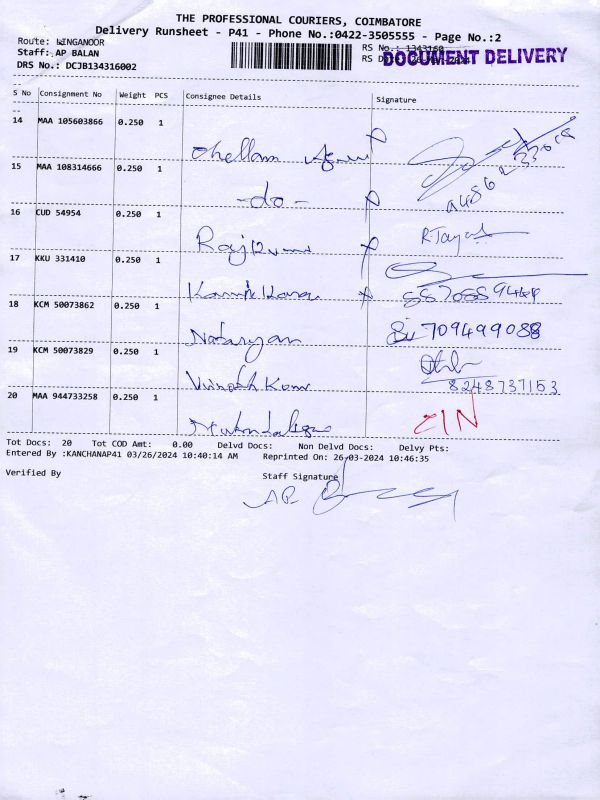 THE PROFESSIONAL COURIERS, COIMBATORE
Delivery Runsheet - P41 - Phone No.:0422-3505555 - Page No.:2
Route: WINGANOOR
RS No.: 1343160
Staff: AP BALAN
RS Date: 26-Mar-2024
DOCUMENT DELIVERY
DRS No.: DCJB134316002
S No Consignment No Weight PCS Consignee Details Signature
14 MAA 105603866 0.250 1
Chellam
15 MAA 108314666 0.250 1
-do-
16 CUD 54954 0.250 1
Rajkumar
17 KKU 331410 0.250 1
18 KCM 50073862 0.250 1
Natarajan 709499088
19 KCM 50073829 0.250 1
Vinoth Kumar 8248737153
20 MAA 944733258 0.250 1
Tot Docs: 20 Tot COD Amt: 0.00 Delvd Docs: Non Delvd Docs: Delvy Pts:
Entered By :KANCHANAP41 03/26/2024 10:40:14 AM Reprinted On: 26-03-2024 10:46:35
Verified By Staff Signature